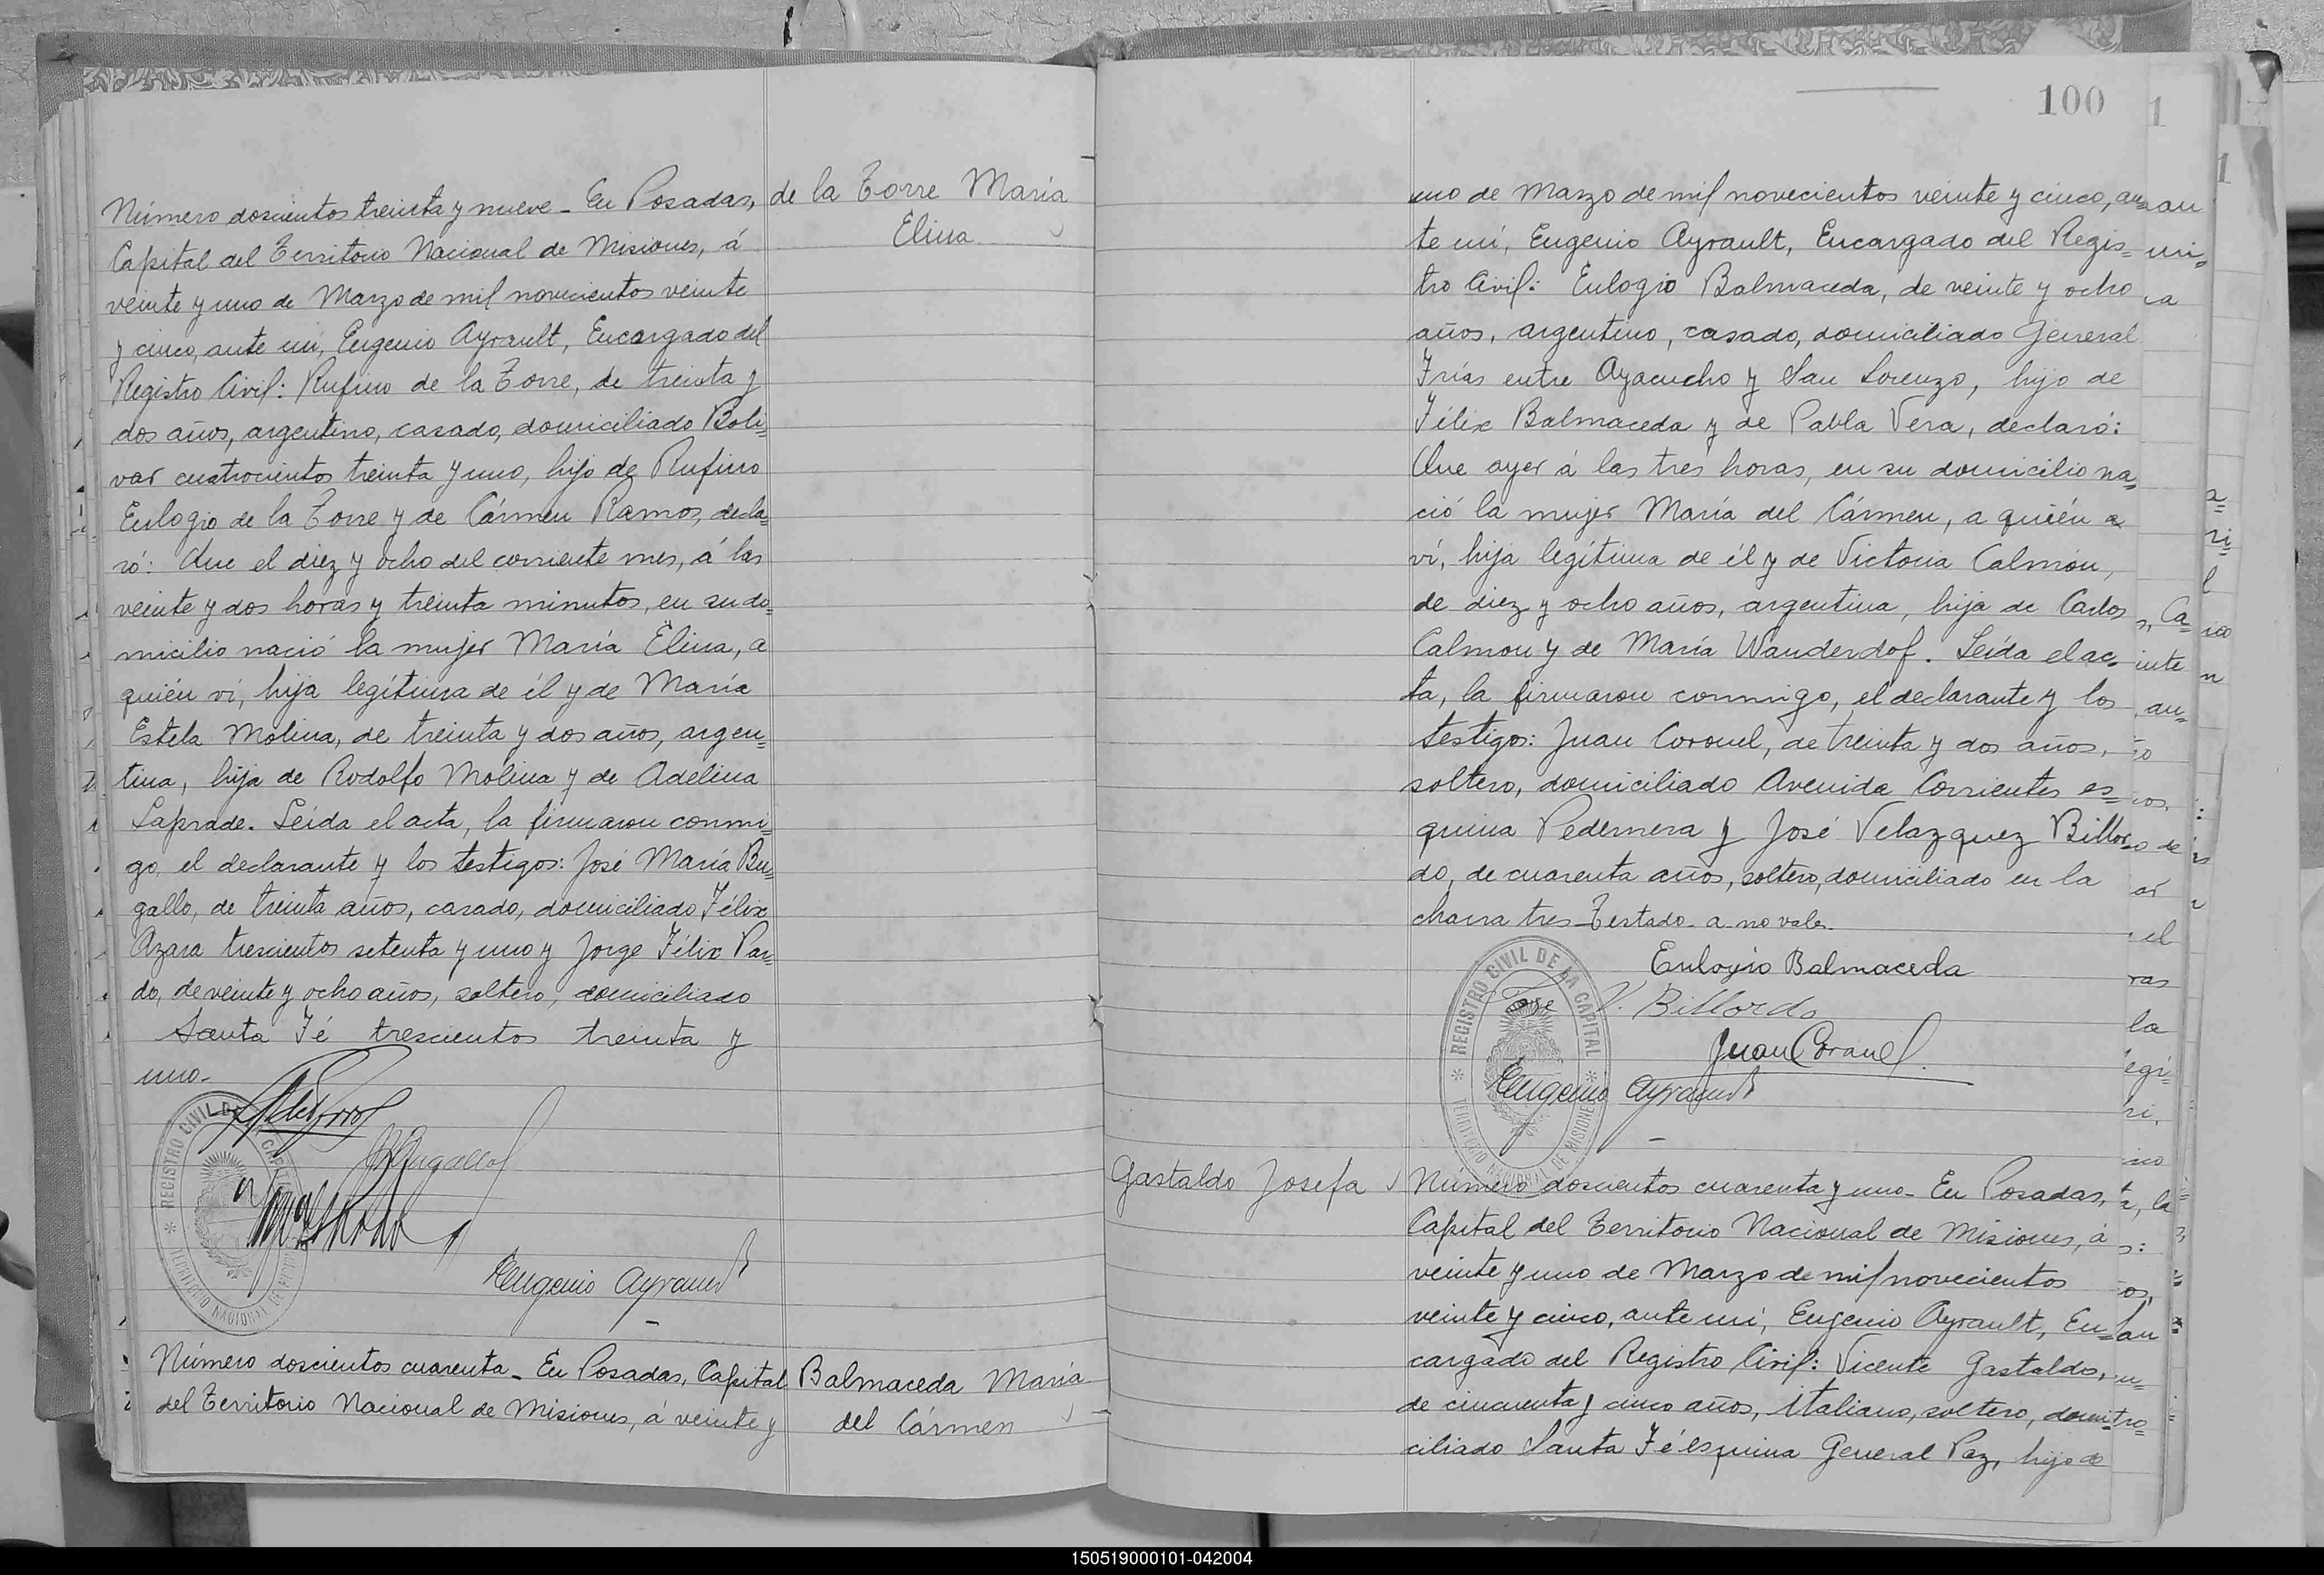 Número doscientos treinta y nueve - En Posadas,
Capital del Territorio Nacional de Misiones, á
veinte y uno de Marzo de mil novecientos veinte
y cinco, ante mí, Eugenio Ayrault, Encargado del
Registro Civil: Rufino de la Torre, de treinta y
dos años, argentino, casado, domiciliado Boli=
var cuatrocientos treinta y uno, hijo de Rufino
Eulogio de la Torre y de Cármen Ramos, decla=
ró: Que el diez y ocho del corriente mes, á las
veinte y dos horas y treinta minutos, en su do=
micilio nació la mujer María Elina, a
quién ví, hija legítima de él y de María
Estela Molina, de treinta y dos años, argen=
tina, hija de Rodolfo Molina y de Adelina
Laprade. Leída el acta, la firmaron conmi=
go, el declarante y los testigos: José María Bu=
gallo, de treinta años, casado, domiciliado Félix
Azara trescientos setenta y uno y Jorge Félix Par=
do, de veinte y ocho años, soltero, domiciliado
Santa Fé trescientos treinta y
uno.
REGISTRO CIVIL DE LA CAPITAL
TERRITORIO NACIONAL DE MISIONES
Eugenio Ayrault
de la Torre María
Elina
Número doscientos cuarenta - En Posadas, Capital
del Territorio Nacional de Misiones, á veinte y
Balmaceda María
del Cármen
100
uno de Marzo de mil novecientos veinte y cinco, an=
te mí, Eugenio Ayrault, Encargado del Regis=
tro Civil: Eulogio Balmaceda, de veinte y ocho
años, argentino, casado, domiciliado General
Frías entre Ayacucho y San Lorenzo, hijo de
Félix Balmaceda y de Pabla Vera, declaró:
Que ayer á las tres horas, en su domicilio na=
ció la mujer María del Cármen, a quién a
ví, hija legítima de él y de Victoria Calmon,
de diez y ocho años, argentina, hija de Carlos
Calmon y de María Wanderdof. Leída el ac=
ta, la firmaron conmigo, el declarante y los
testigos: Juan Coronel, de treinta y dos años,
soltero, domiciliado Avenida Corrientes es=
quina Pedernera y José Velazquez Billor=
do, de cuarenta años, soltero, domiciliado en la
chacra tres - Testado - a - no vale.
Eulogio Balmaceda
Jose V. Billordo
Juan Coronel
Eugenio Ayrault
REGISTRO CIVIL DE LA CAPITAL
TERRITORIO NACIONAL DE MISIONES
Gastaldo Josefa
Número doscientos cuarenta y uno - En Posadas,
Capital del Territorio Nacional de Misiones, á
veinte y uno de Marzo de mil novecientos
veinte y cinco, ante mí, Eugenio Ayrault, En=
cargado del Registro Civil: Vicente Gastaldo,
de cincuenta y cinco años, italiano, soltero, domi=
ciliado Santa Fé esquina General Paz, hijo de
150519000101-042004